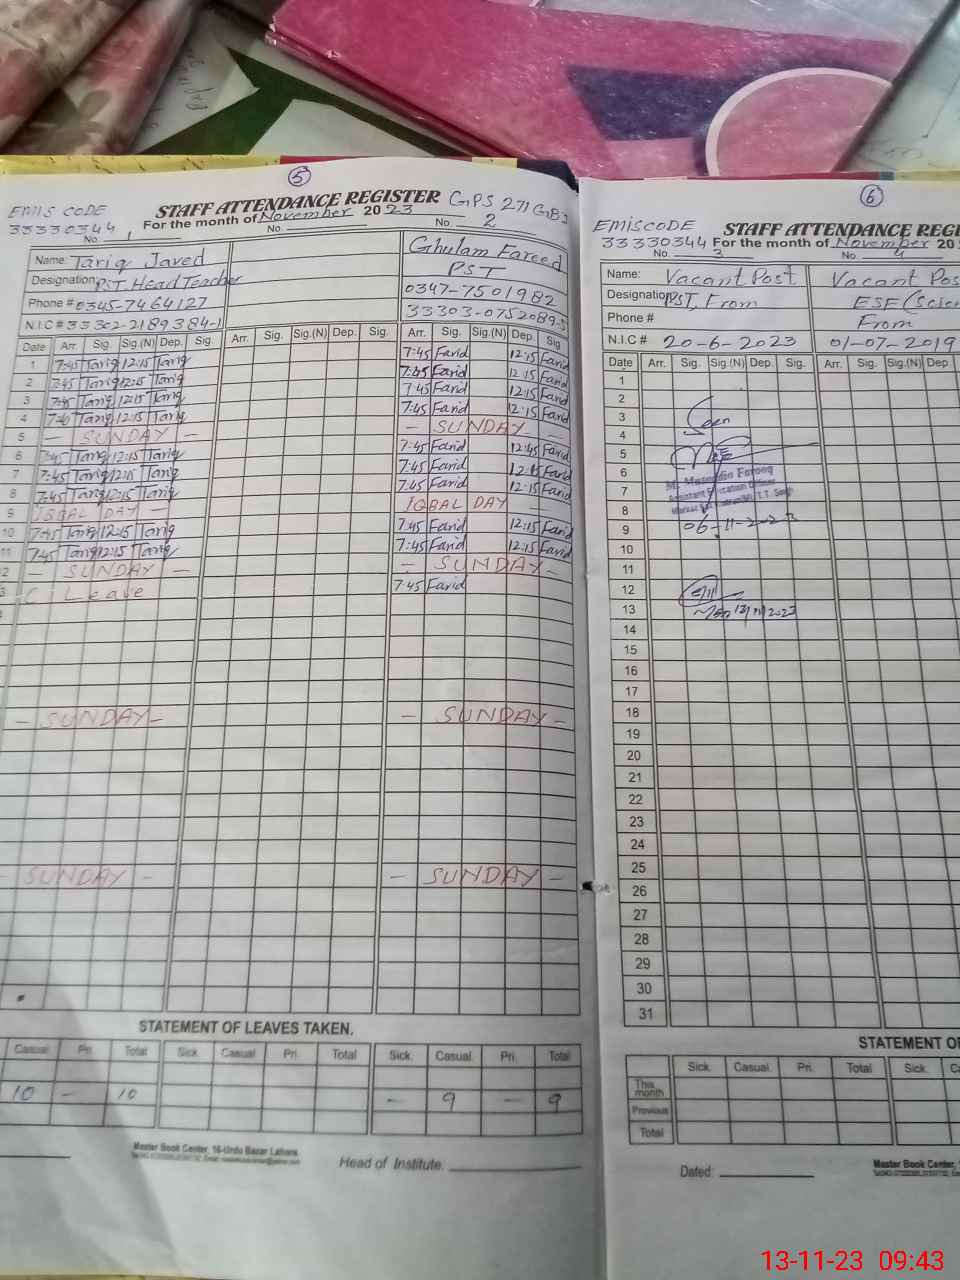 5
EMIS CODE
33330344
STAFF ATTENDANCE REGISTER GPS 271 GB
For the month of November 2023
No. 1 No. No. 2
Name: Tariq Javed
Designation: PST. Head Teacher
Phone # 0345-7464127
N.I.C # 33302-2189384-1
Ghulam Fareed
PST
0347-7501982
33303-0752089-5
Date Arr. Sig. Sig.(N) Dep. Sig. Arr. Sig. Sig.(N) Dep. Sig. Arr. Sig. Sig.(N) Dep. Sig
1 7:45 Tariq 12:15 Tariq 7:45 Farid 12:15 Farid
2 7:45 Tariq 12:15 Tariq 7:45 Farid 12:15 Farid
3 7:45 Tariq 12:15 Tariq 7:45 Farid 12:15 Farid
4 Tariq 12:15 Tariq 7:45 Farid 12:15 Farid
5 — SUNDAY — — SUNDAY
6 7:45 Tariq 12:15 Tariq 7:45 Farid 12:45 Farid
7 7:45 Tariq 12:15 Tariq 7:45 Farid 12:15 Farid
8 7:45 Tariq 12:15 Tariq 7:45 Farid 12:15 Farid
9 IQBAL DAY — IQBAL DAY —
10 7:45 Tariq 12:15 Tariq 7:45 Farid 12:15 Farid
11 7:45 Tariq 12:15 Tariq 7:45 Farid 12:15 Farid
2 — SUNDAY — — SUNDAY —
3 C. Leave 7:45 Farid
— SUNDAY — — SUNDAY —
— SUNDAY — — SUNDAY —
STATEMENT OF LEAVES TAKEN.
Casual Pri. Total Sick. Casual Pri. Total Sick. Casual Pri. Total
10 — 10 — 9 — 9
Master Book Center, 16-Urdu Bazar Lahore.
Head of Institute.
6
EMISCODE
33330344
STAFF ATTENDANCE REG
For the month of November 20
No. 3 No. 4
Name: Vacant Post Vacant Pos
Designation: PST, From ESE (Scien
Phone # From
N.I.C # 20-6-2023 01-07-2019
Date Arr. Sig. Sig.(N) Dep. Sig. Arr. Sig. Sig.(N) Dep
1
2
3
4 Seen
5
6
7 Assistant Education Officer
8
9
10
11
12
13 13/11/2023
14
15
16
17
18
19
20
21
22
23
24
25
26
27
28
29
30
31
STATEMENT O
Sick. Casual. Pri. Total Sick. C
This month
Previous
Total
Dated:
Master Book Center,
13-11-23 09:43